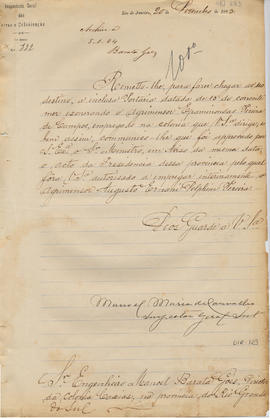 Inspectoria Geral
das
Terras e Colonisação
Rio de Janeiro, 20 de Dezembro de 1883.
N. 222
Archive
5-1-84
Barata Goes
Remetto-lhe, para fazer chegar ao seu
destino, a inclusa Portaria datada de 10 do corrente
mez exonerando o Agrimensor Epaminondas
de Campos, empregado na colonia que V. Sª dirige; e
bem assim, communico-lhe que foi approvado por
S. Exª o Sr. Ministro, em Aviso da mesma data,
o acto da Presidencia dessa provincia pelo qual
fôra V. Sª autorisado a empregar interinamente o
Agrimensor Augusto Pereira
Deos Guarde a V. Sª
Manoel Maria de Carvalho
Inspector Geral Int.
Sr. Engenheiro Manoel Barata Goes,
da colonia Caxias, na provincia do Rio Grande
do Sul